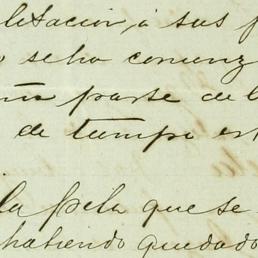 litacion á sus
o se ha comenz
una parte de l
de tiempo es
la fila que se
habiendo quedado